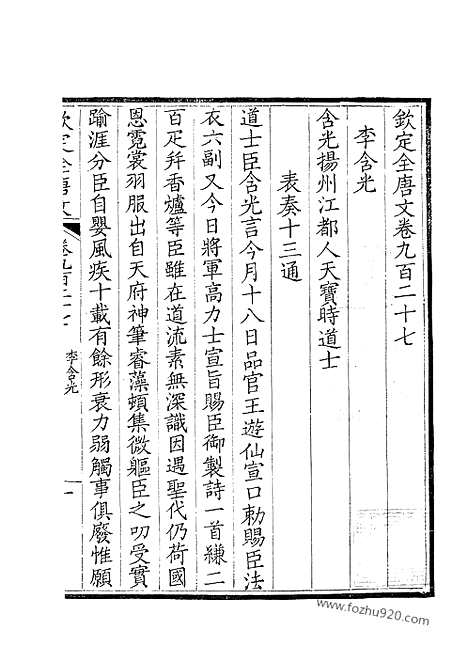 欽定全唐文卷九百二十七
李含光
含光揚州江都人天寶時道士
表奏十三通
道士臣含光言今月十八日品官王遊仙宣口勅賜臣法
衣六副又今日將軍高力士宣旨賜臣御製詩一首縑二
百疋幷香爐等臣雖在道流素無深識因遇聖代仍荷國
恩霓裳羽服出自天府神筆睿藻頓集微軀臣之叨受實
踰涯分臣自嬰風疾十載有餘形衰力弱觸事俱廢惟願
欽定全唐文
卷九百二十七
李含光
一
www.fozhu920.com